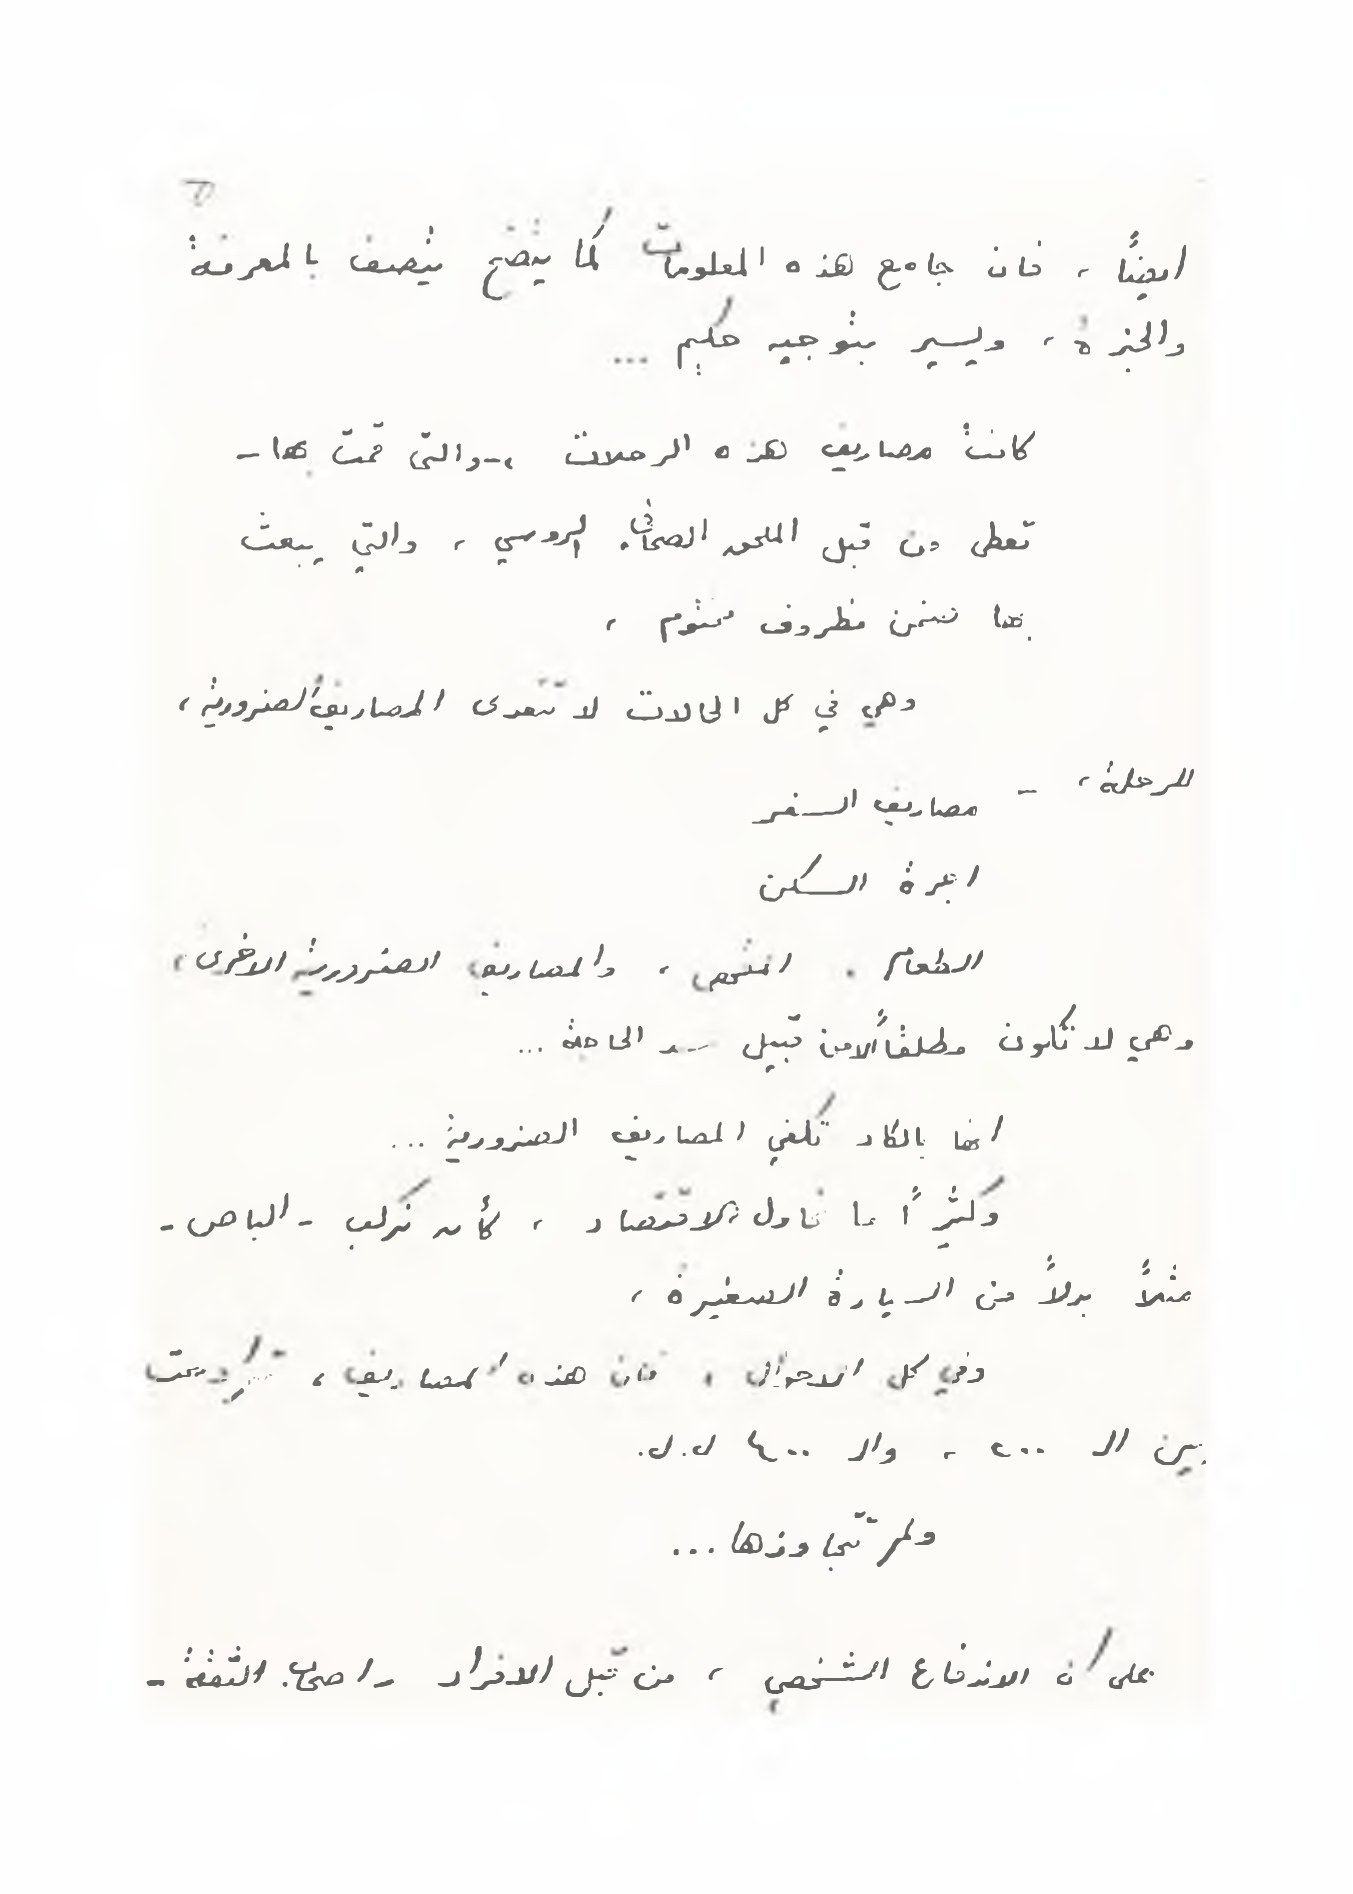 ايضاً ، فان جامع هذه المعلومات كما يتضح يتصف بالمعرفة
والخبرة ، ويسير بتوجيه حكيم ...
كانت مصاريف هذه الرحلات ، - والتي قمت بها -
تعطى من قبل الملحق الصحافي الروسي ، والتي يبعث
بها ضمن مظروف مختوم ،
وهي في كل الحالات لا تتعدى المصاريف الضرورية ،
للرحلة ، - مصاريف السفر
اجرة السكن
الطعام . ، والمصاريف الضرورية الاخرى ،
وهي لا تكون مطلقاً الا من قبيل سد الحاجة ...
انها بالكاد تكفي المصاريف الضرورية ...
وكثيراً ما نحاول الاقتصاد ، كأن نركب - الباص -
مثلاً بدلاً من السيارة الصغيرة ،
وفي كل الاحوال ، فان هذه المصاريف ، تراوحت
بين الـ ٢٠٠ ، والـ ٤٠٠ ل.ل.
ولم تتجاوزها ...
على ان الاندفاع الشخصي ، من قبل الافراد - اصحاب الثقة -